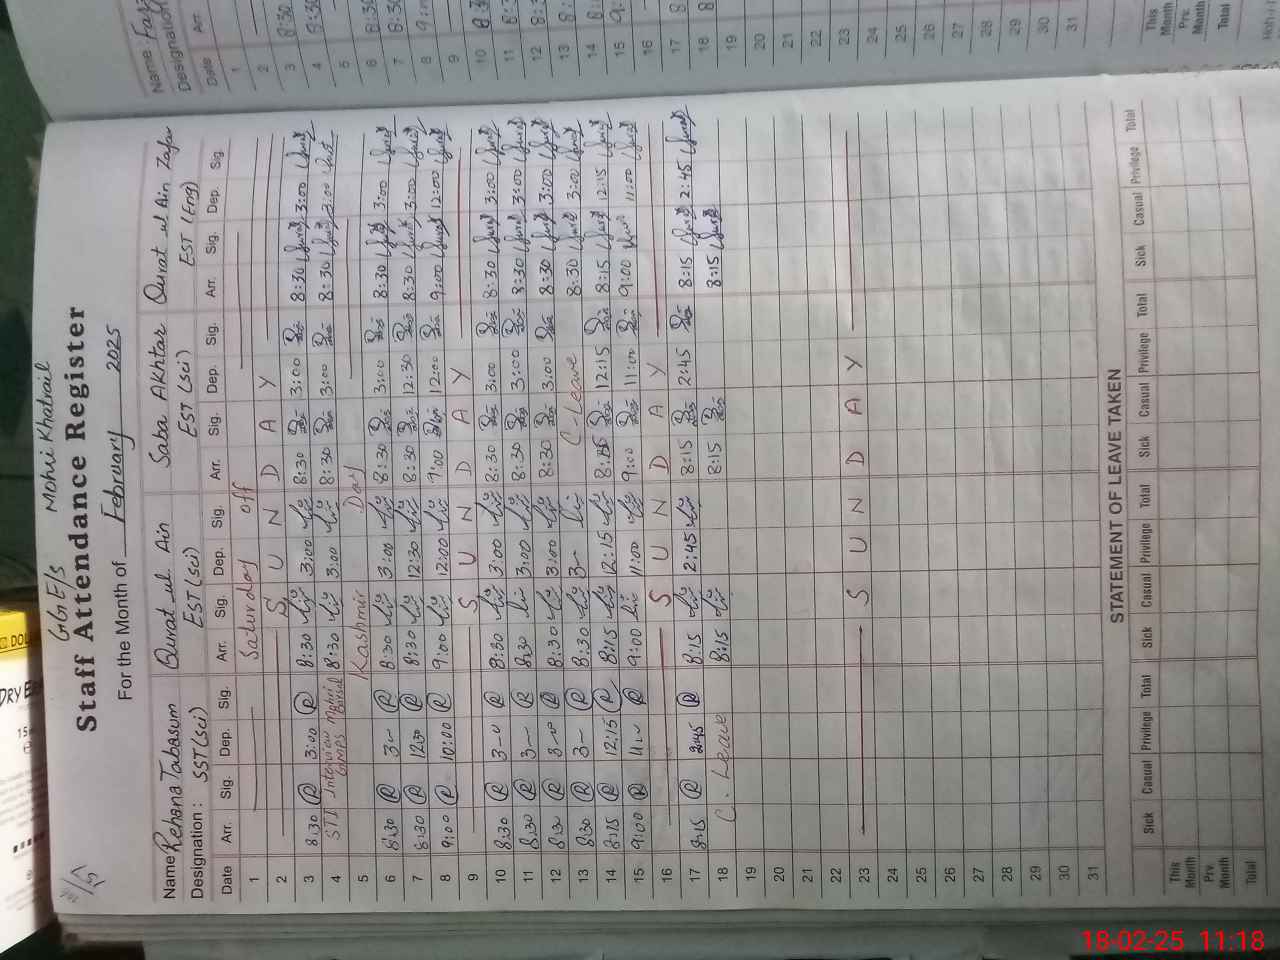 GGE/S Mohri Khatrail
Staff Attendance Register
For the Month of February 2025
Name Rehana Tabasum Qurat ul Ain Saba Akhtar Qurat ul Ain Zafar
Designation: SST (sci) EST (sci) EST (sci) EST (Eng)
Date Arr. Sig. Dep. Sig. Arr. Sig. Dep. Sig. Arr. Sig. Dep. Sig. Arr. Sig. Dep. Sig.
1 Saturday off
2 S U N D A Y
3 8:30 R 3:00 R 8:30 3:00 8:30 3:00 8:30 3:00
4 STI Interview GMPS Mohri 8:30 3:00 8:30 3:00 8:30 3:00
5 Kashmir Day
6 8:30 R 3- R 8:30 3:00 8:30 3:00 8:30 3:00
7 8:30 R 12:30 R 8:30 12:30 8:30 12:30 8:30 3:00
8 9:00 R 10:00 R 9:00 12:00 9:00 12:00 9:00 12:00
9 S U N D A Y
10 8:30 R 3-0 R 8:30 3:00 8:30 3:00 8:30 3:00
11 8:30 R 3- R 8:30 3:00 8:30 3:00 8:30 3:00
12 8:30 R 3-0 R 8:30 3:00 8:30 3:00 8:30 3:00
13 8:30 R 3- R 8:30 3- C-Leave 8:30 3:00
14 8:15 R 12:15 R 8:15 12:15 8:15 12:15 8:15 12:15
15 9:00 R 11-0 R 9:00 11:00 9:00 11:00 9:00 11:00
16 S U N D A Y
17 8:15 R 2:45 R 8:15 2:45 8:15 2:45 8:15 2:45
18 C. Leave 8:15 8:15 8:15
19
20
21
22
23 S U N D A Y
24
25
26
27
28
29
30
31
STATEMENT OF LEAVE TAKEN
Sick Casual Privilege Total Sick Casual Privilege Total Sick Casual Privilege Total Sick Casual Privilege Total
This Month
Prv. Month
Total
Name:
Designation
Date Arr
1
2
3 8:30
4 8:30
5
6 8:30
7 8:30
8
9
10
11
12
13
14
15
16
17
18
19
20
21
22
23
24
25
26
27
28
29
30
31
This Month
Prv. Month
Total
18-02-25 11:18